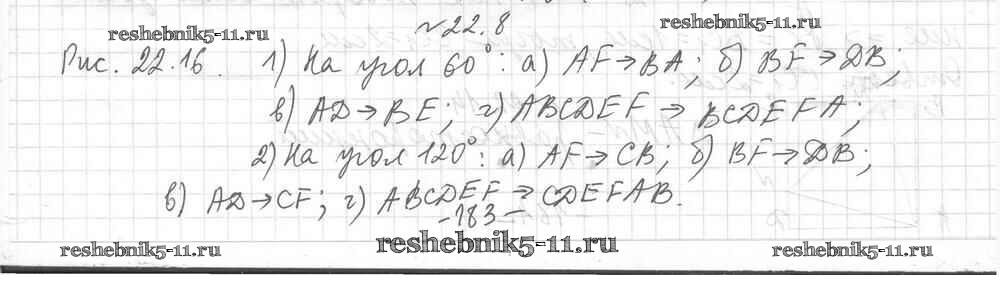 №22.8
reshebnik5-11.ru reshebnik5-11.ru
Рис. 22.16. 1) На угол 60°: а) AF→BA; б) BF→DB;
в) AD→BE; г) ABCDEF → BCDEFA;
2) На угол 120°: а) AF→CB; б) BF→DB;
в) AD→CF; г) ABCDEF → CDEFAB.
-183-
reshebnik5-11.ru reshebnik5-11.ru reshebnik5-11.ru